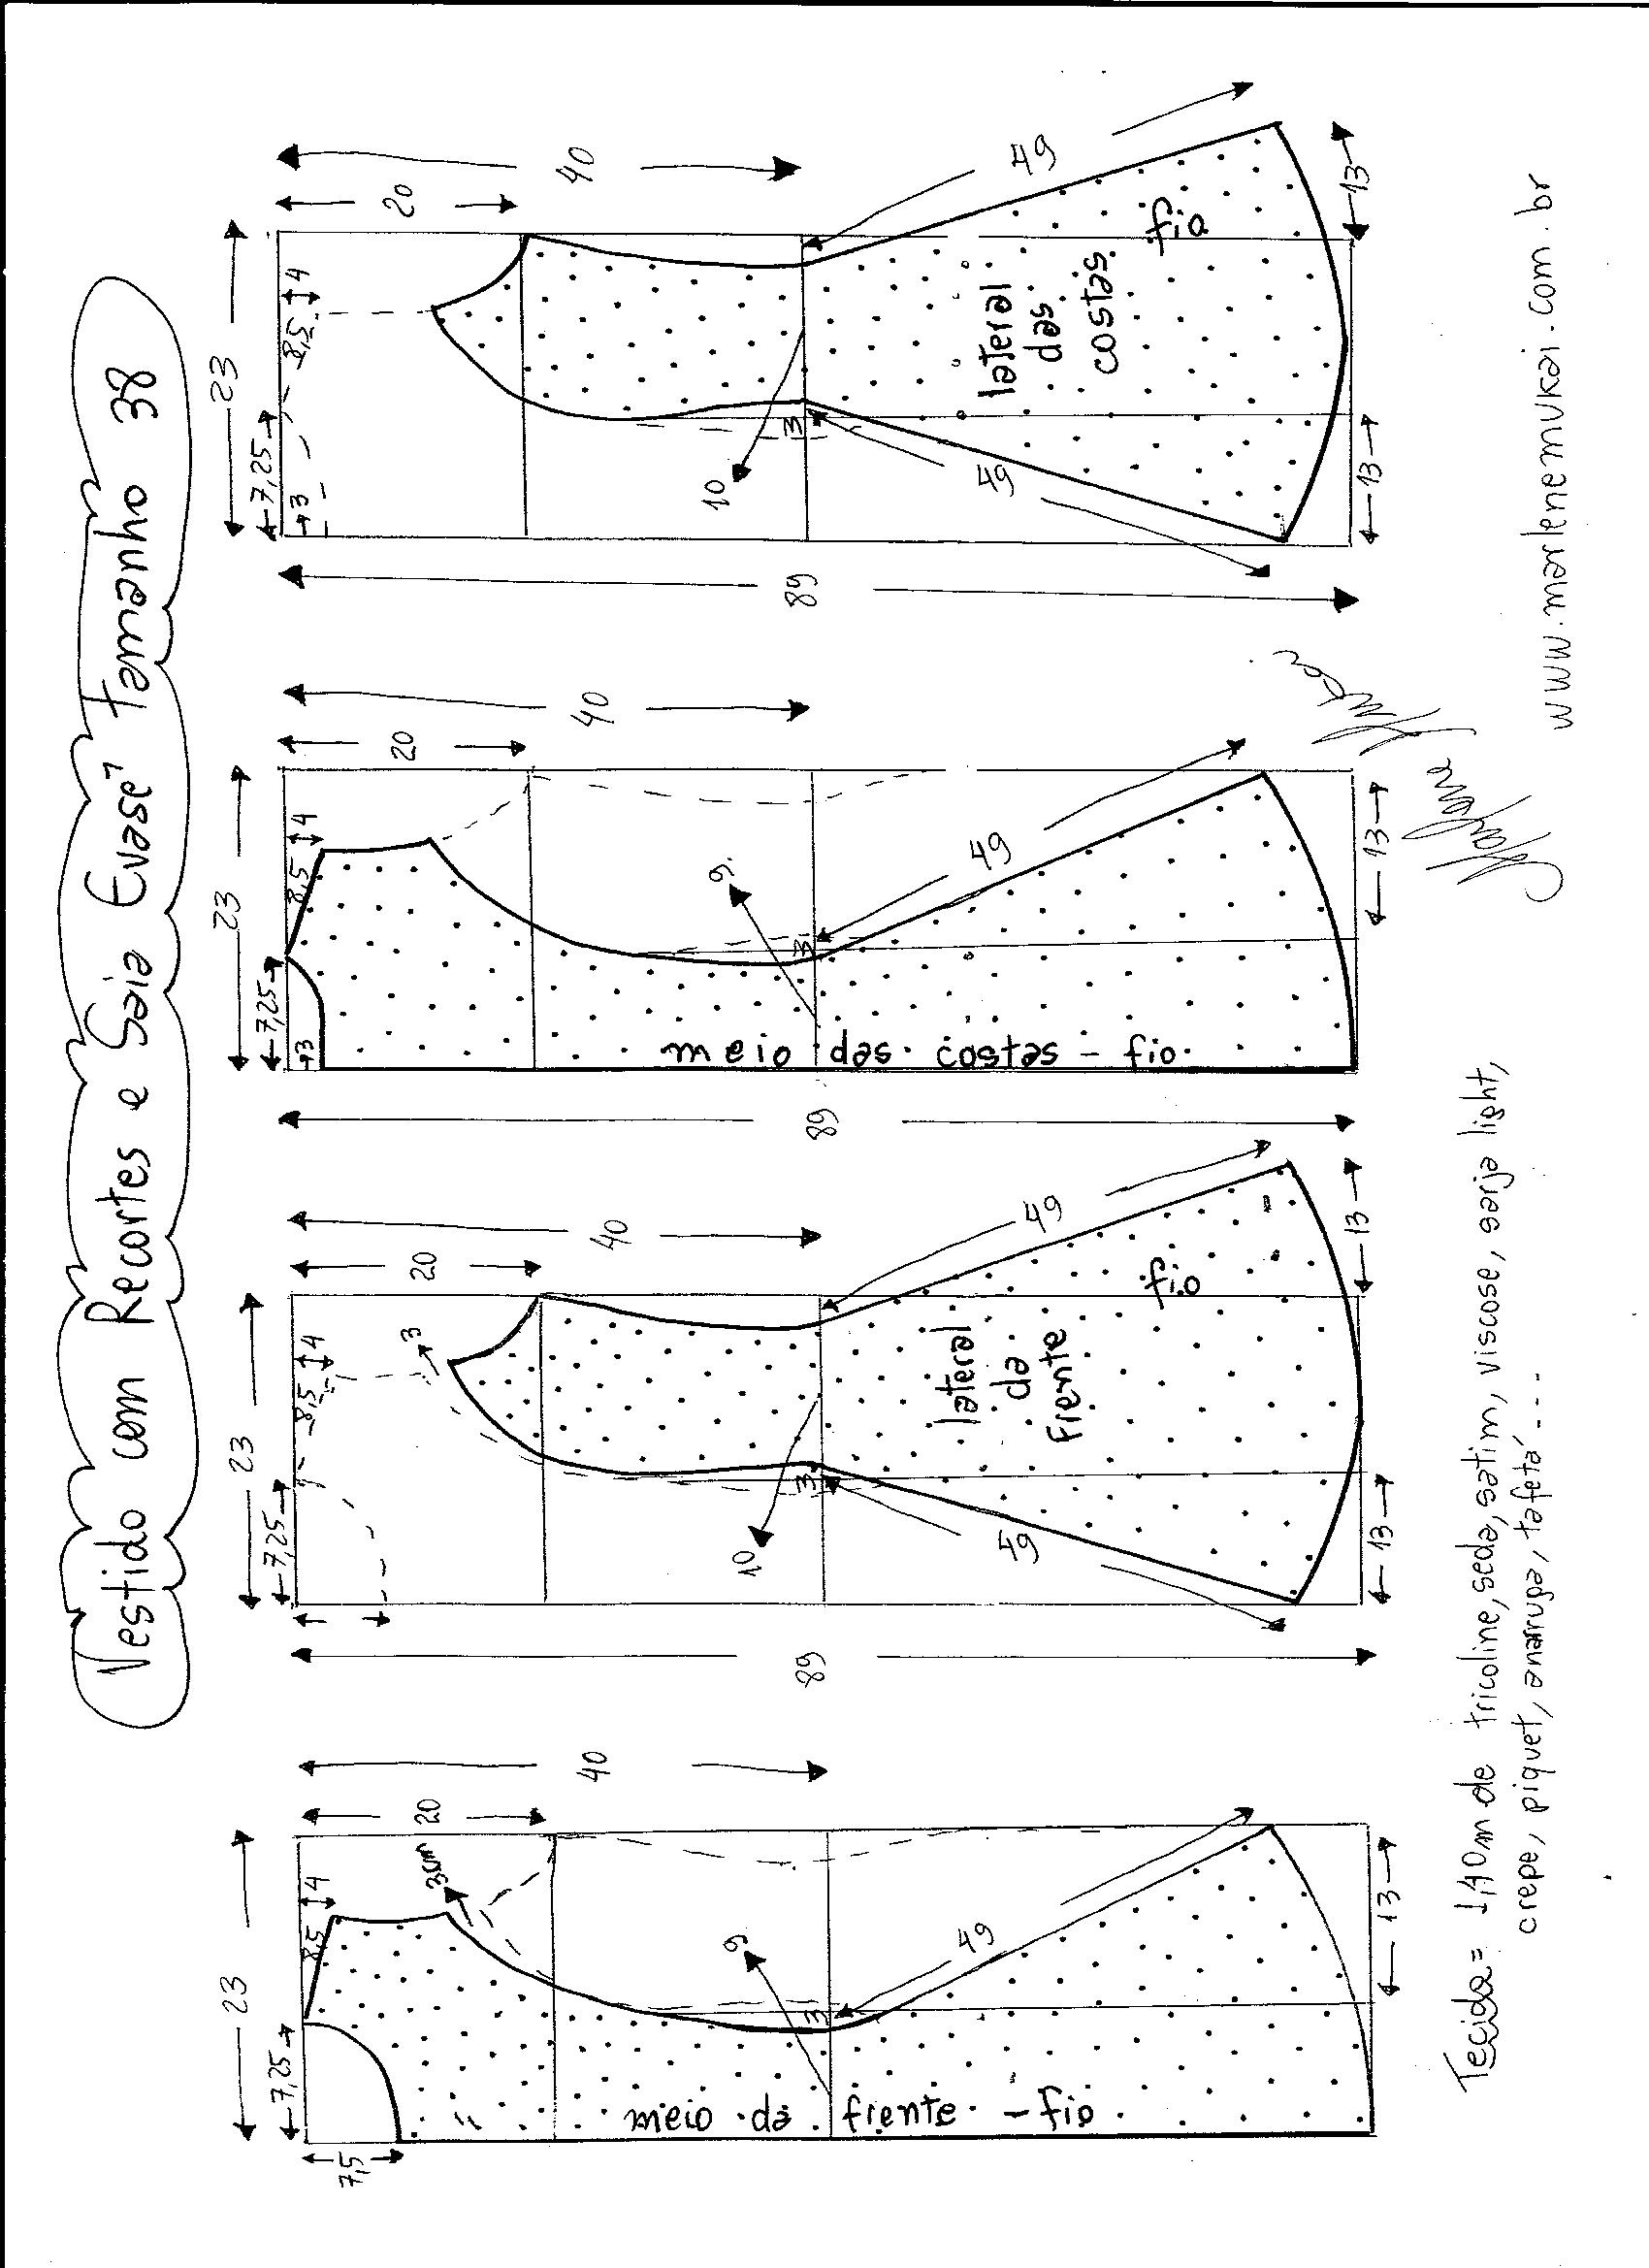 Vestido com Recortes e Saia Evasê Tamanho 38
23
7,25
8,5
4
7,5
20
40
3cm
9
3
49
13
meio da frente - fio
23
7,25
8,5
4
20
40
3
10
3
49
49
13
13
89
lateral
da
frente
fio
23
7,25
8,5
4
3
20
40
9
3
49
13
89
meio das costas - fio
23
7,25
8,5
4
3
20
40
10
3
49
49
13
13
89
lateral
das
costas
fio
Tecido= 1,40m de tricoline, seda, satim, viscose, sarja light,
crepe, piquet, anarruga, tafetá - - -
Marlene Mukai
www.marlenemukai.com.br